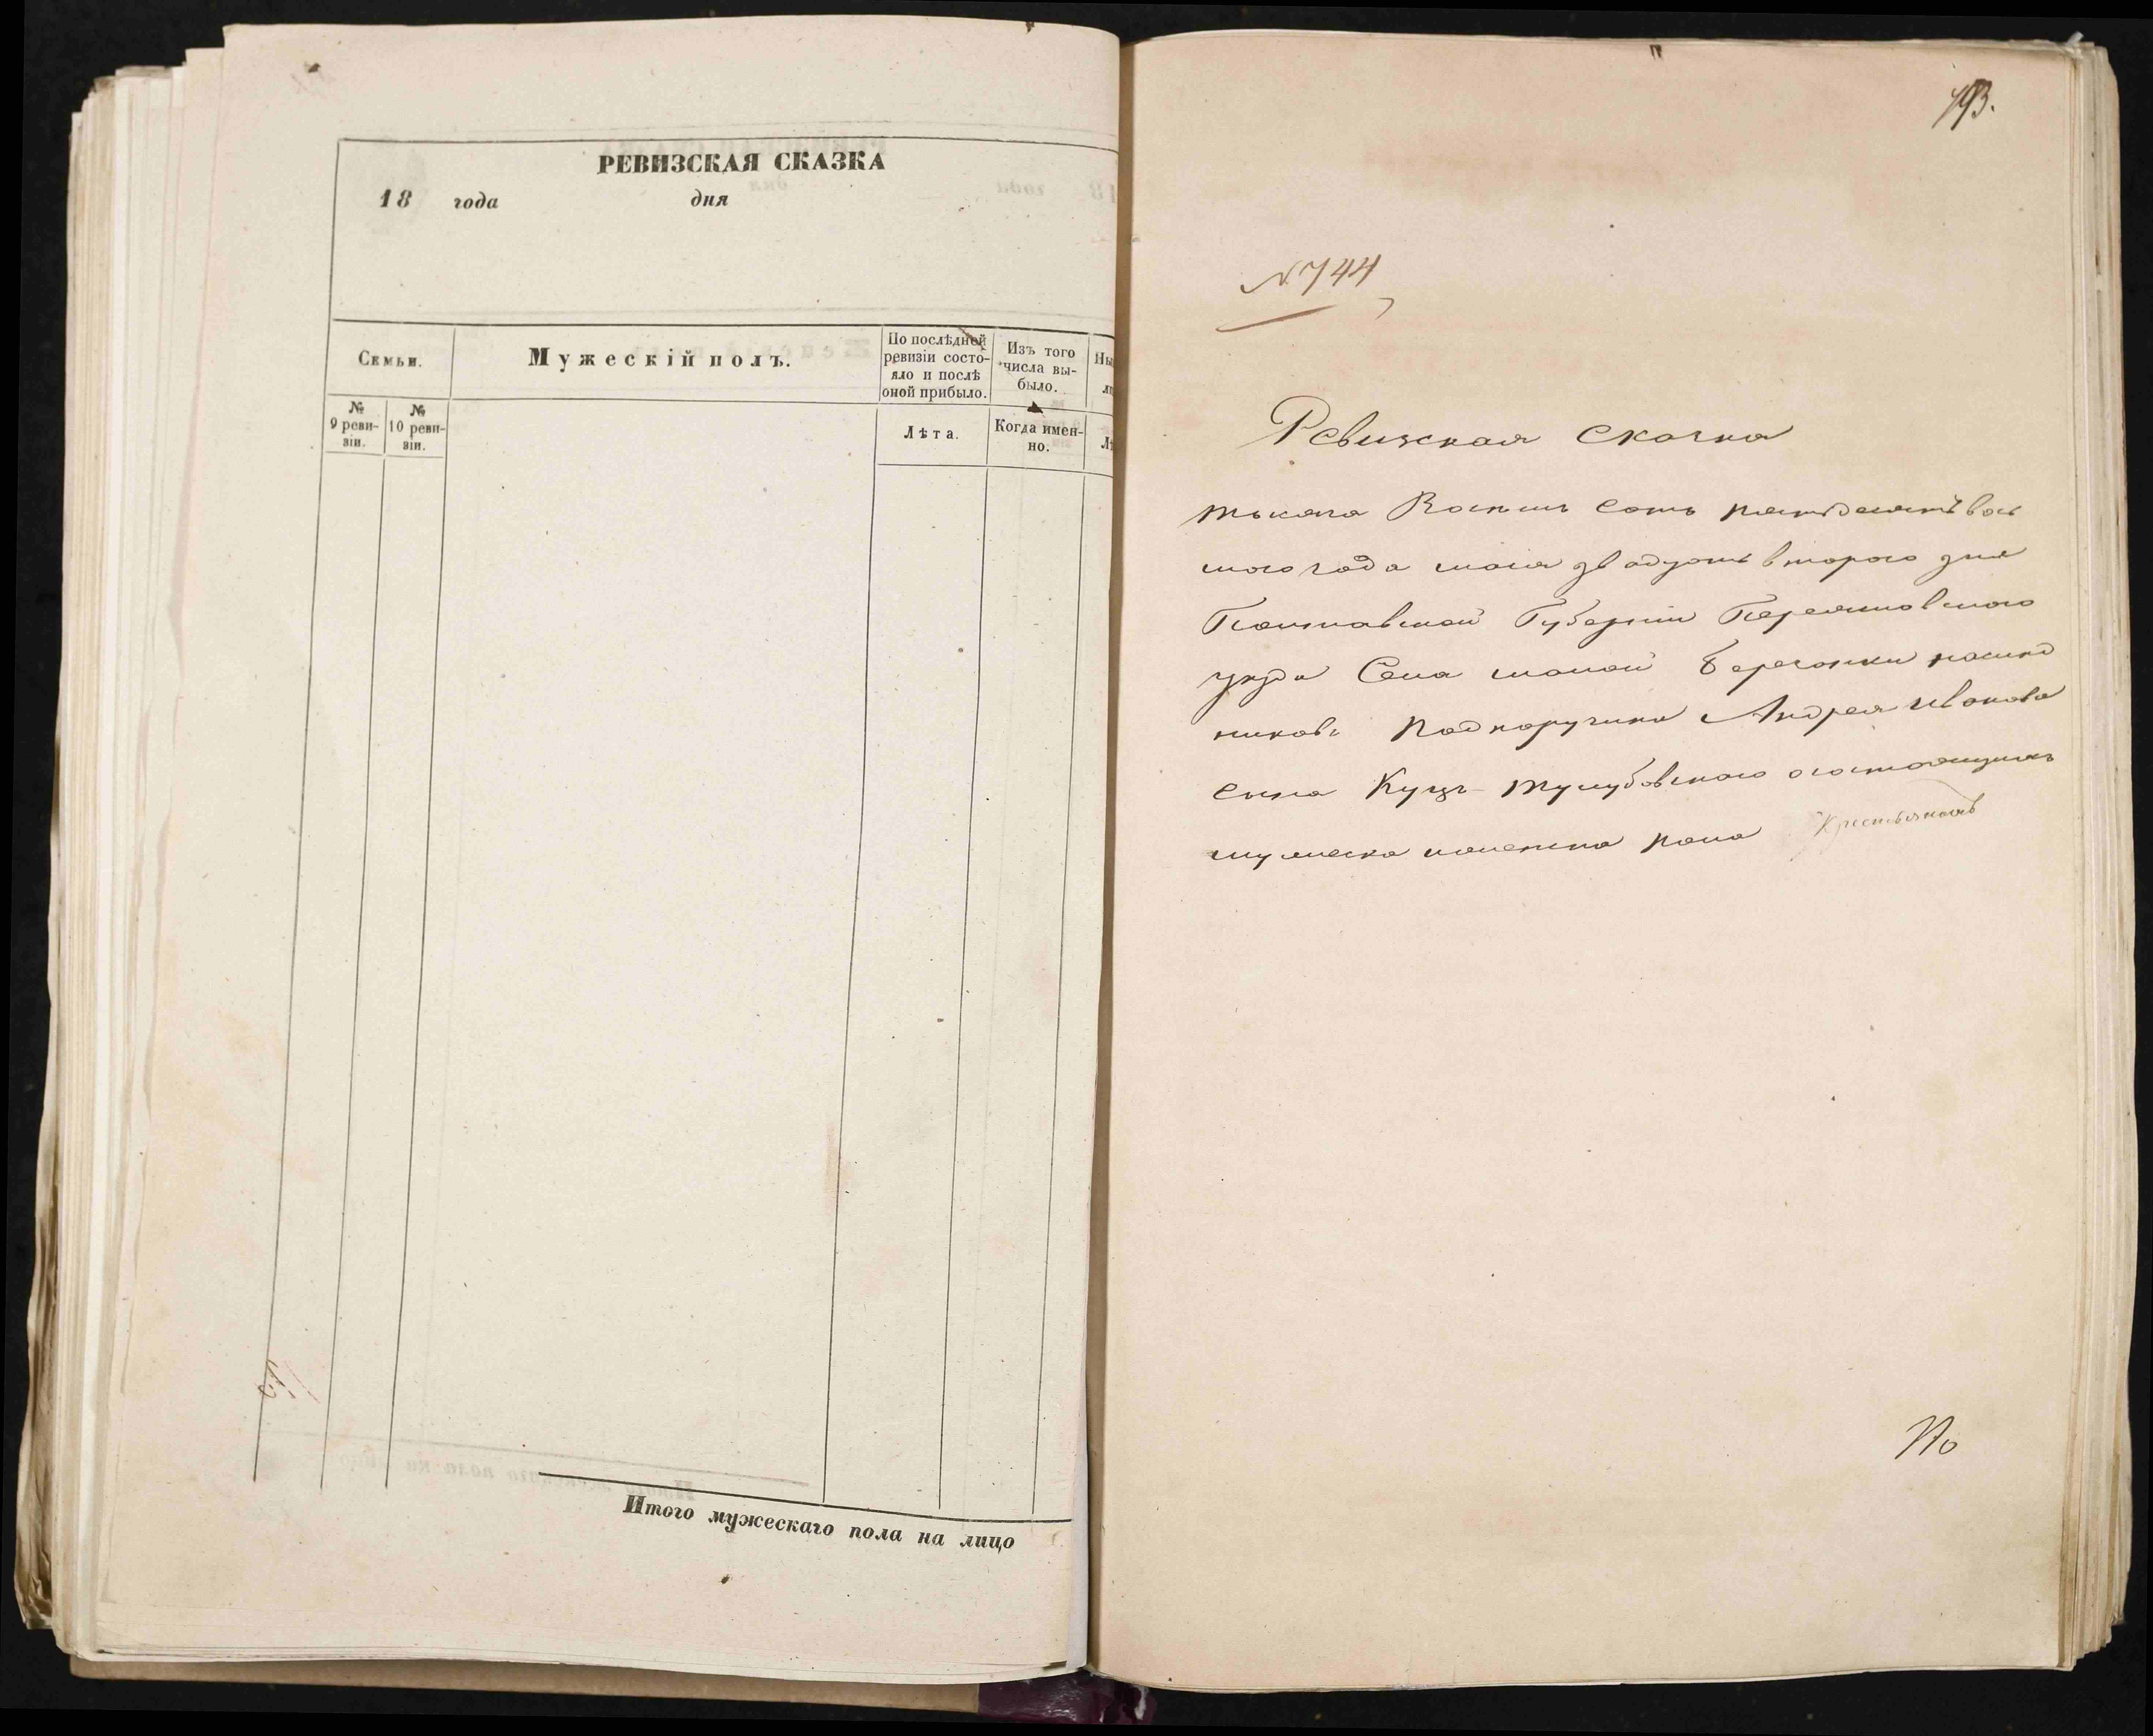 РЕВИЗСКАЯ СКАЗКА
18 года дня
Семьи.
Мужескій полъ.
По послѣдней
ревизіи состо-
яло и послѣ
оной прибыло.
Изъ того
числа вы-
было.
№
9 реви-
зіи.
№
10 реви-
зіи.
Лѣта.
Когда имен-
но.
Итого мужескаго пола на лицо
193.
N. 744
Ревизская сказка
тысяча Восемь сотъ пятьдесятъ вось
мого года маія двадцять второго дня
Полтавской Губерніи Переяславского
уезда Села малой Каратульки
Подпоручика Андрея Иванова
сына о состоящихъ
мужеска и женска пола Крестьянахъ
По